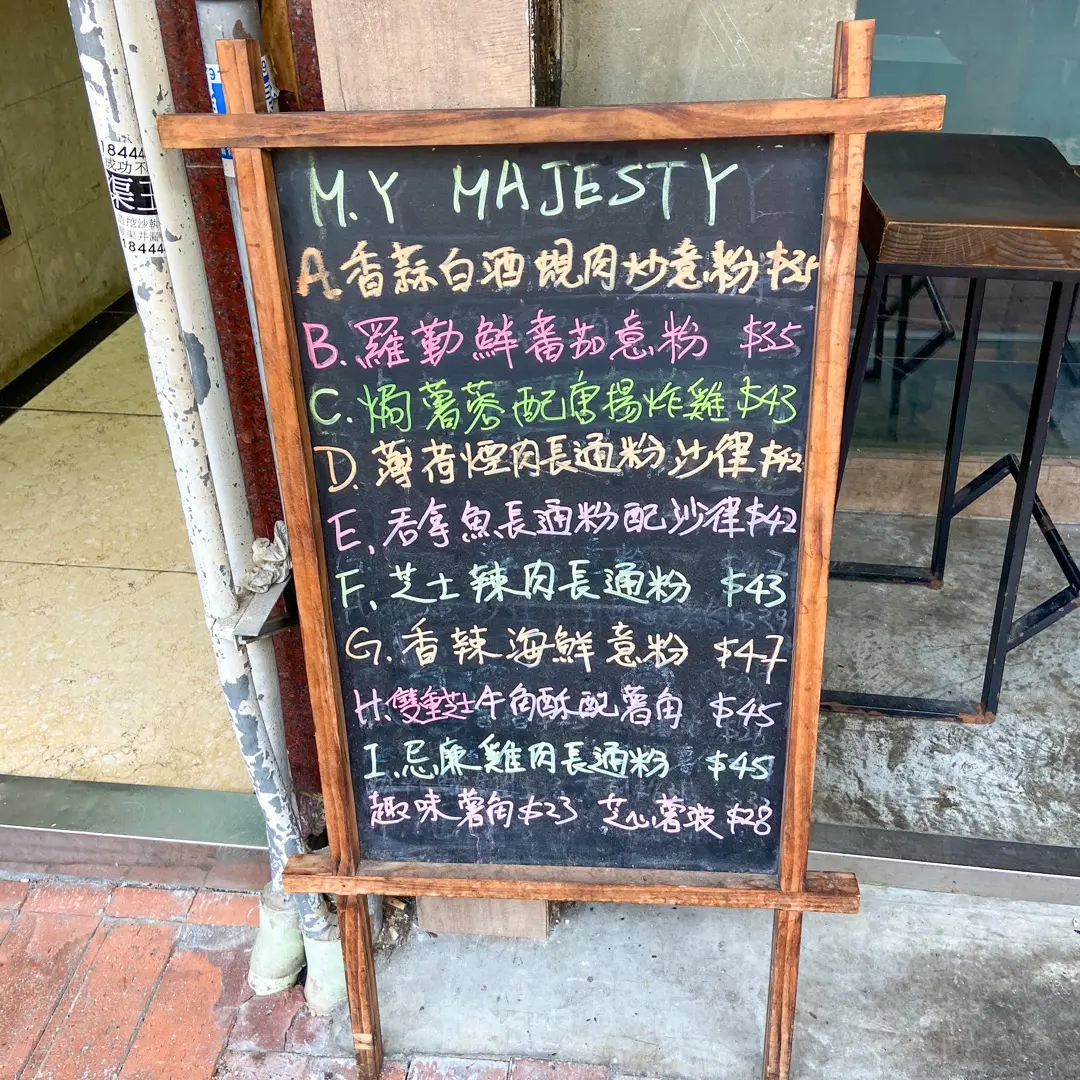 M.Y MAJESTY
A.香蒜白酒蜆肉炒意粉 $35
B.羅勒鮮蕃茄意粉 $35
C.焗薯蓉配唐揚炸雞 $43
D.薄荷煙肉長通粉沙律 $42
E.吞拿魚長通粉配沙律 $42
F.芝士辣肉長通粉 $43
G.香辣海鮮意粉 $47
H.雙重芝士牛角酥配薯角 $45
I.忌廉雞肉長通粉 $45
趣味薯角 $23 芝心薯波 $28
18444
成功不
渠王
18444